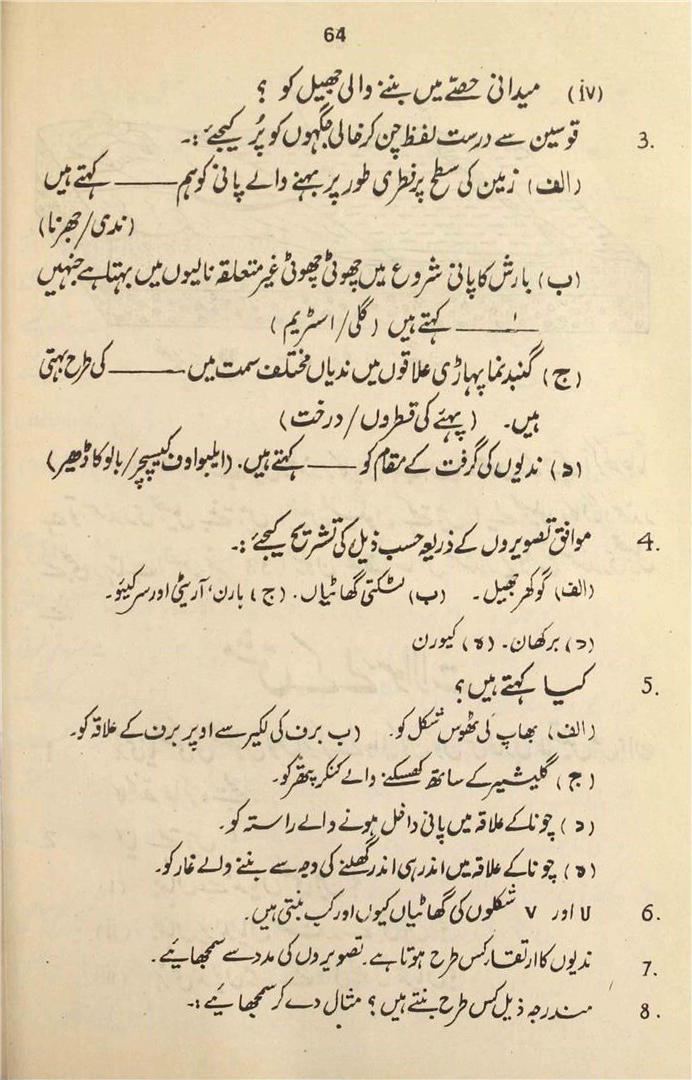 64
(iv) میدانی حصّے میں بننے والی جھیل کو ؟
3. قوسین سے درست لفظ چن کر خالی جگہوں کو پُر کیجئے :۔
(الف) زمین کی سطح پر فطری طور پر بہنے والے پانی کو ہم ـــــــ کہتے ہیں
(ندی/جھرنا)
(ب) بارش کا پانی شروع میں چھوٹی چھوٹی غیر متعلقہ نالیوں میں بہتا ہے جنہیں
ـــــــ کہتے ہیں (گلی/اسٹریم)
(ج) گنبد نما پہاڑی علاقوں میں ندیاں مختلف سمت میں ـــــــ کی طرح بہتی
ہیں۔ (پہئے کی قطروں/درخت)
(د) ندیوں کی گرفت کے مقام کو ـــــــ کہتے ہیں۔ (ایلبو اوف کیپچر/بالو کا ڈھیر)
4. موافق تصویروں کے ذریعہ حسب ذیل کی تشریح کیجئے :۔
(الف) گوکھر جھیل۔ (ب) لٹکتی گھاٹیاں۔ (ج) ہارن، آریٹی اور سرکیئو۔
(د) برکھان۔ (ہ) کیورن
5. کیا کہتے ہیں؟
(الف) بھاپ کی ٹھوس شکل کو۔ (ب برف کی لکیر سے اوپر برف کے علاقہ کو۔
(ج) گلیشیر کے ساتھ کھسکنے والے کنکر پتھر کو۔
(د) چونا کے علاقہ میں پانی داخل ہونے والے راستہ کو۔
(ہ) چونا کے علاقہ میں اندر ہی اندر گھلنے کی وجہ سے بننے والے غار کو۔
6. U اور V شکلوں کی گھاٹیاں کیوں اور کب بنتی ہیں۔
7. ندیوں کا ارتقار کس طرح ہوتا ہے۔ تصویروں کی مدد سے سمجھایئے۔
8. مندرجہ ذیل کس طرح بنتے ہیں؟ مثال دے کر سمجھایئے :۔